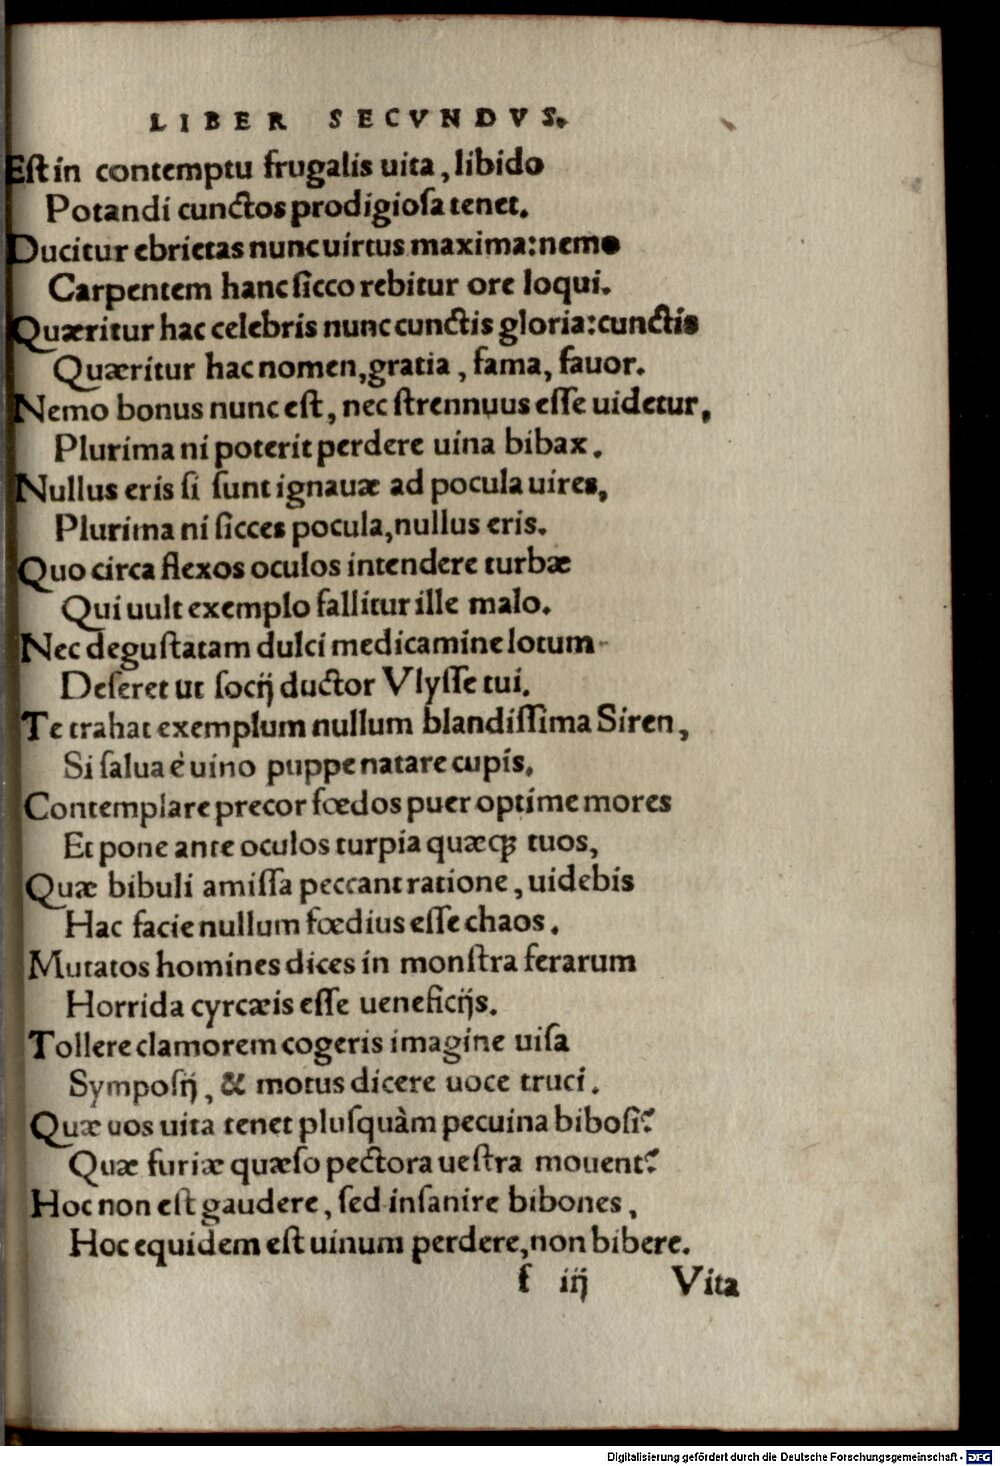 LIBER SECVNDVS.
Eſt in contemptu frugalis uita, libido
Potandi cunctos prodigioſa tenet.
Ducitur ebrietas nunc uirtus maxima: nemo
Carpentem hanc ſicco rebitur ore loqui.
Quæritur hac celebris nunc cunctis gloria: cunctis
Quæritur hac nomen, gratia, fama, fauor.
Nemo bonus nunc eſt, nec ſtrennuus eſſe uidetur,
Plurima ni poterit perdere uina bibax.
Nullus eris ſi ſunt ignauæ ad pocula uires,
Plurima ni ſicces pocula, nullus eris.
Quo circa flexos oculos intendere turbæ
Qui uult exemplo fallitur ille malo.
Nec deguſtatam dulci medicamine lotum
Deſeret ut ſocij ductor Vlyſſe tui.
Te trahat exemplum nullum blandiſſima Siren,
Si ſalua è uino puppe natare cupis.
Contemplare precor fœdos puer optime mores
Et pone ante oculos turpia quæq; tuos,
Quæ bibuli amiſſa peccant ratione, uidebis
Hac facie nullum fœdius eſſe chaos.
Mutatos homines dices in monſtra ferarum
Horrida cyrcæis eſſe ueneficijs.
Tollere clamorem cogeris imagine uiſa
Sympoſij, & motus dicere uoce truci.
Quæ uos uita tenet pluſquàm pecuina biboſi?
Quæ furiæ quæſo pectora ueſtra mouent?
Hoc non eſt gaudere, ſed inſanire bibones,
Hoc equidem eſt uinum perdere, non bibere.
f iij Vita
Digitalisierung gefördert durch die Deutsche Forschungsgemeinschaft - DFG